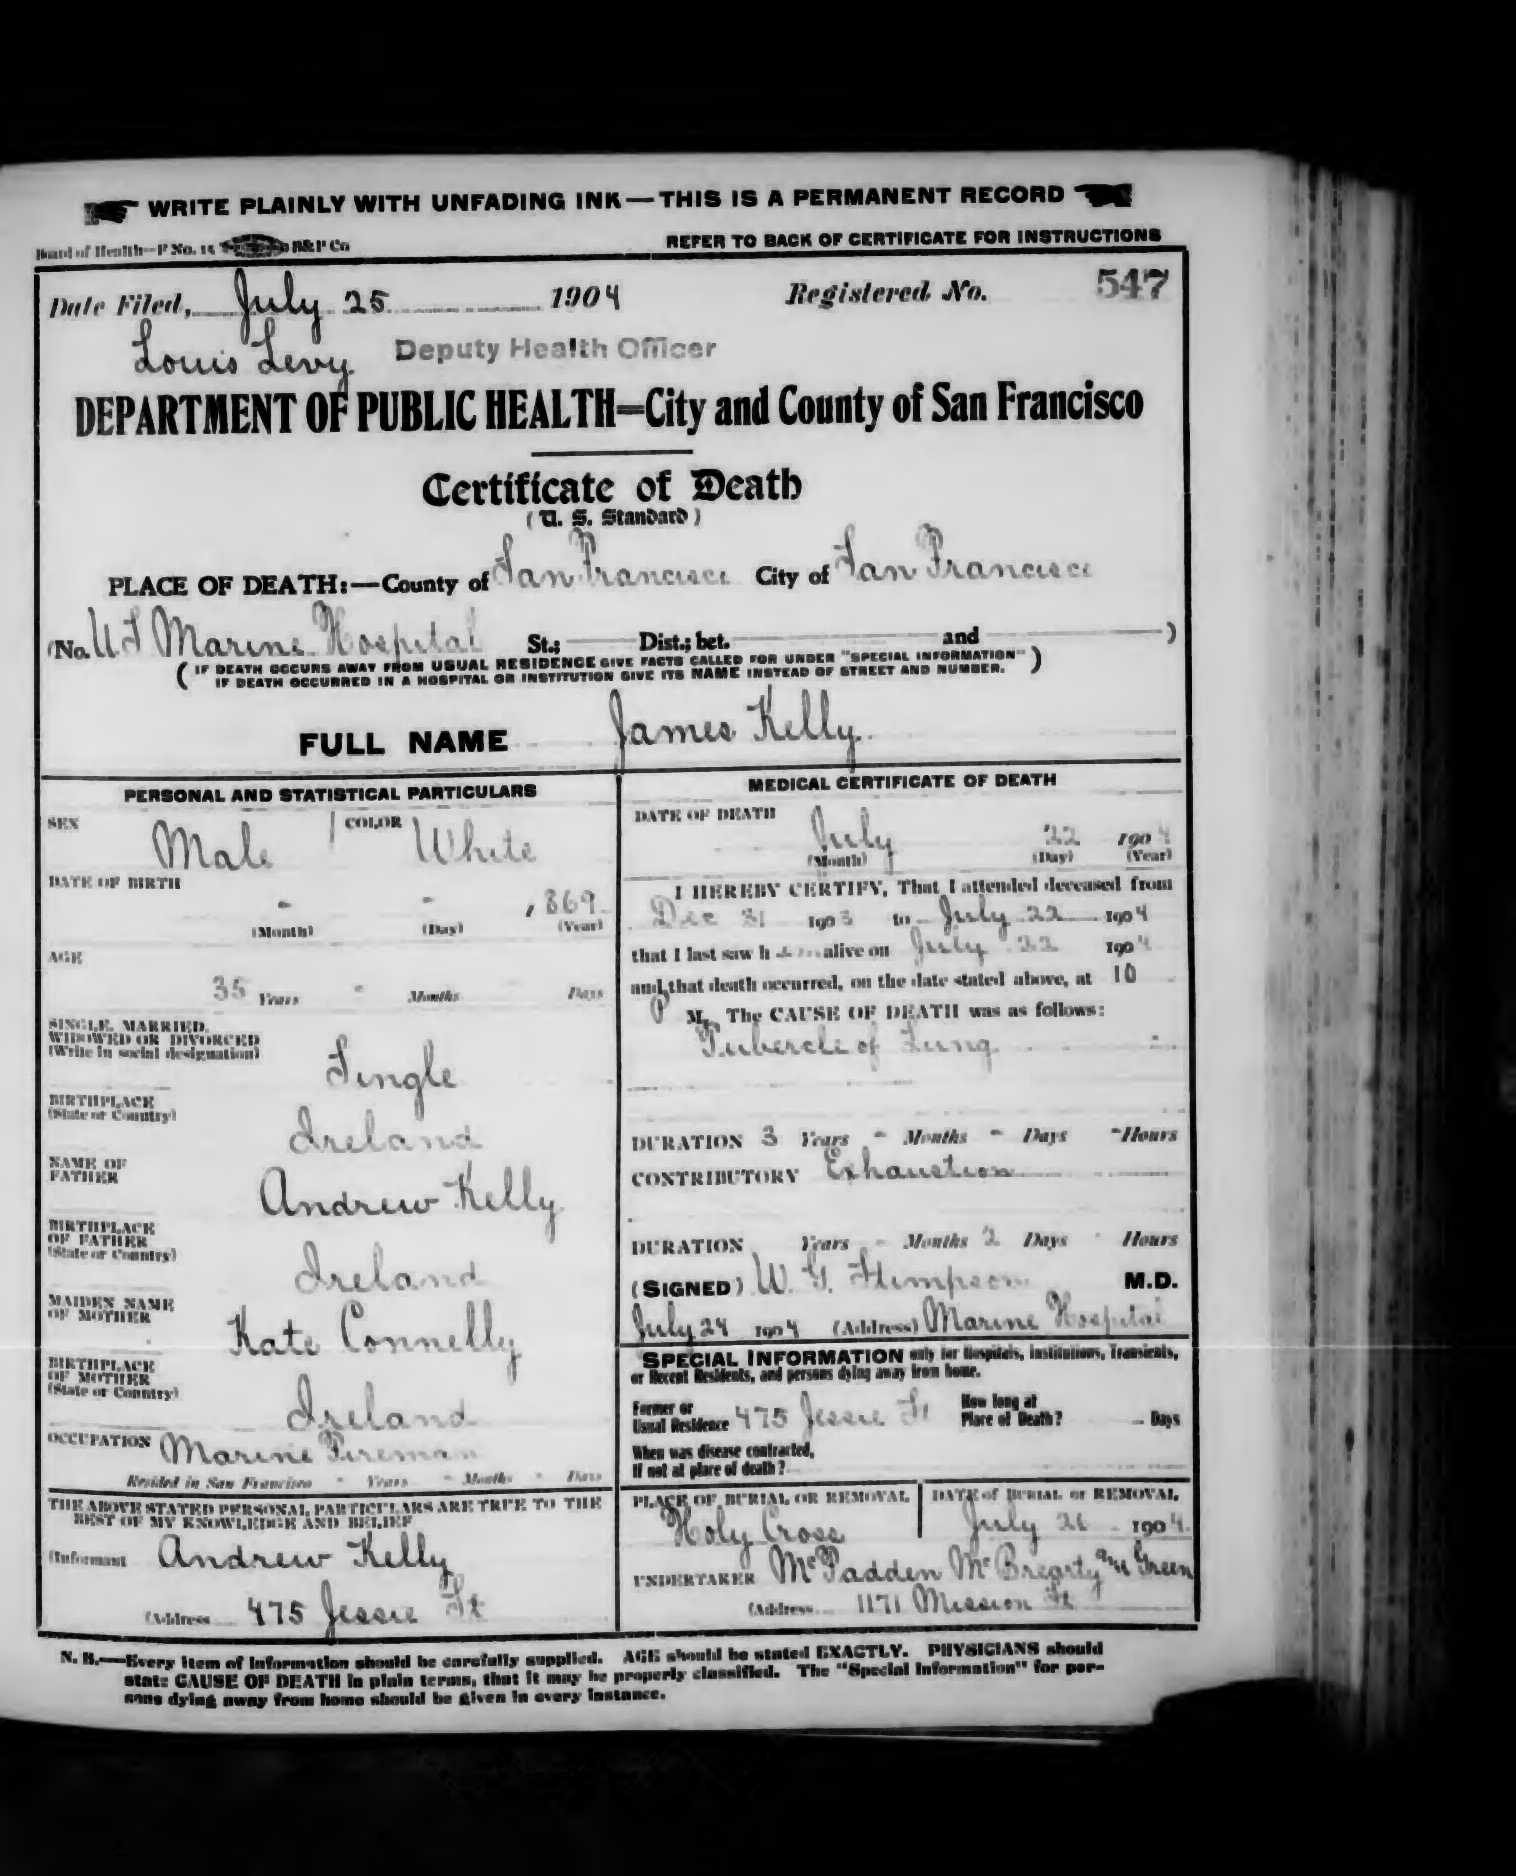 WRITE PLAINLY WITH UNFADING INK—THIS IS A PERMANENT RECORD
Board of Health—F No. 15 B&P Co
REFER TO BACK OF CERTIFICATE FOR INSTRUCTIONS
Date Filed, July 25 1904 Registered No. 547
Louis Levy Deputy Health Officer
DEPARTMENT OF PUBLIC HEALTH=City and County of San Francisco
Certificate of Death
(U. S. Standard)
PLACE OF DEATH:—County of San Francisco City of San Francisco
(No. U S Marine Hospital St.; Dist.; bet. and )
(IF DEATH OCCURS AWAY FROM USUAL RESIDENCE GIVE FACTS CALLED FOR UNDER "SPECIAL INFORMATION"
IF DEATH OCCURRED IN A HOSPITAL OR INSTITUTION GIVE ITS NAME INSTEAD OF STREET AND NUMBER.)
FULL NAME James Kelly
PERSONAL AND STATISTICAL PARTICULARS
SEX Male COLOR White
DATE OF BIRTH
- - 1869
(Month) (Day) (Year)
AGE
35 Years - Months Days
SINGLE, MARRIED,
WIDOWED OR DIVORCED
(Write in social designation)
Single
BIRTHPLACE
(State or Country)
Ireland
NAME OF
FATHER
Andrew Kelly
BIRTHPLACE
OF FATHER
(State or Country)
Ireland
MAIDEN NAME
OF MOTHER
Kate Connelly
BIRTHPLACE
OF MOTHER
(State or Country)
Ireland
OCCUPATION Marine Fireman
Resided in San Francisco - Years - Months - Days
THE ABOVE STATED PERSONAL PARTICULARS ARE TRUE TO THE
BEST OF MY KNOWLEDGE AND BELIEF
(Informant Andrew Kelly
(Address 475 Jessie St
MEDICAL CERTIFICATE OF DEATH
DATE OF DEATH
July 22 1904
(Month) (Day) (Year)
I HEREBY CERTIFY, That I attended deceased from
Dec 31 1903 to July 22 1904
that I last saw h im alive on July 22 1904
and that death occurred, on the date stated above, at 10
P M. The CAUSE OF DEATH was as follows:
Tubercle of Lung
DURATION 3 Years - Months - Days - Hours
CONTRIBUTORY Exhaustion
DURATION Years - Months 2 Days - Hours
(SIGNED) W. G. Stimpson M.D.
July 24 1904 (Address) Marine Hospital
SPECIAL INFORMATION only for Hospitals, Institutions, Transients,
or Recent Residents, and persons dying away from home.
Former or
Usual Residence 475 Jessie St
How long at
Place of Death? Days
When was disease contracted,
If not at place of death?
PLACE OF BURIAL OR REMOVAL
Holy Cross
DATE of BURIAL or REMOVAL
July 26 1904
UNDERTAKER McFadden McBrearty and Green
(Address 1171 Mission St
N. B.—Every item of information should be carefully supplied. AGE should be stated EXACTLY. PHYSICIANS should
state CAUSE OF DEATH in plain terms, that it may be properly classified. The "Special Information" for per-
sons dying away from home should be given in every instance.